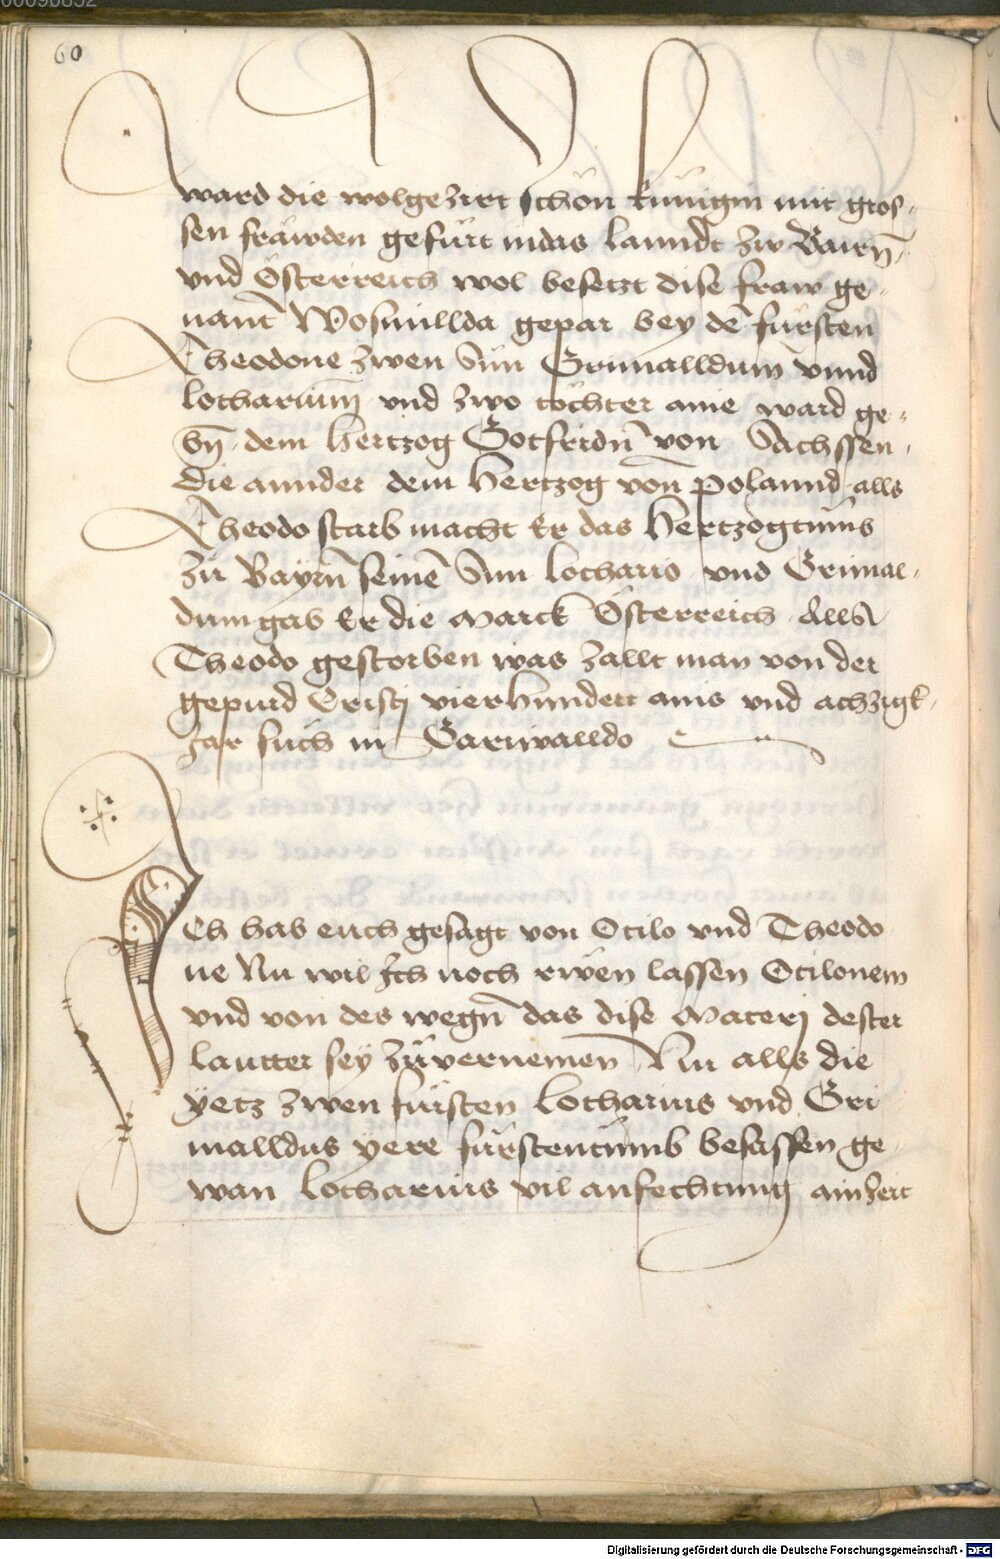 60
ward die wolgezirt schön künigin mit gros-
sen fräwden gefürt indas lanndt zw Bairn̄
vnd Österreich wol besetzt dise fraw ge-
nant Wosmillda gepar bey dē fürsten
Theodone zwen Sün Grimalldum vnnd
lotharium vnd zwo töchter aine ward ge-
bn̄ dem Hertzog Gotfridn̄ von Sachssen
die annder dem Hertzog von Polannd alls
Theodo starb macht Er das Hertzogtumb
zu Bayrn̄ seinē Sun lothario vnd Grimal-
dum gab Er die Marck Österreich Alls
Theodo gestorben was zallt man von der
gepurd Cristj vierhundert ains vnd achzigk
Jar such in Gariwalldo
Ich hab euch gesagt von Otilo vnd Theodo
ne Nu wil Ich noch rwen lassen Otilonem
vnd von des wegn̄ das dise Materj dester
lautter sey zuvernemen Nu alls die
yetz zwen fürsten Lotharius vnd Gri
malldus yere fürstentumb besassen ge-
wan Lotharius vil anfechtung ainzeit
Digitalisierung gefördert durch die Deutsche Forschungsgemeinschaft - DFG